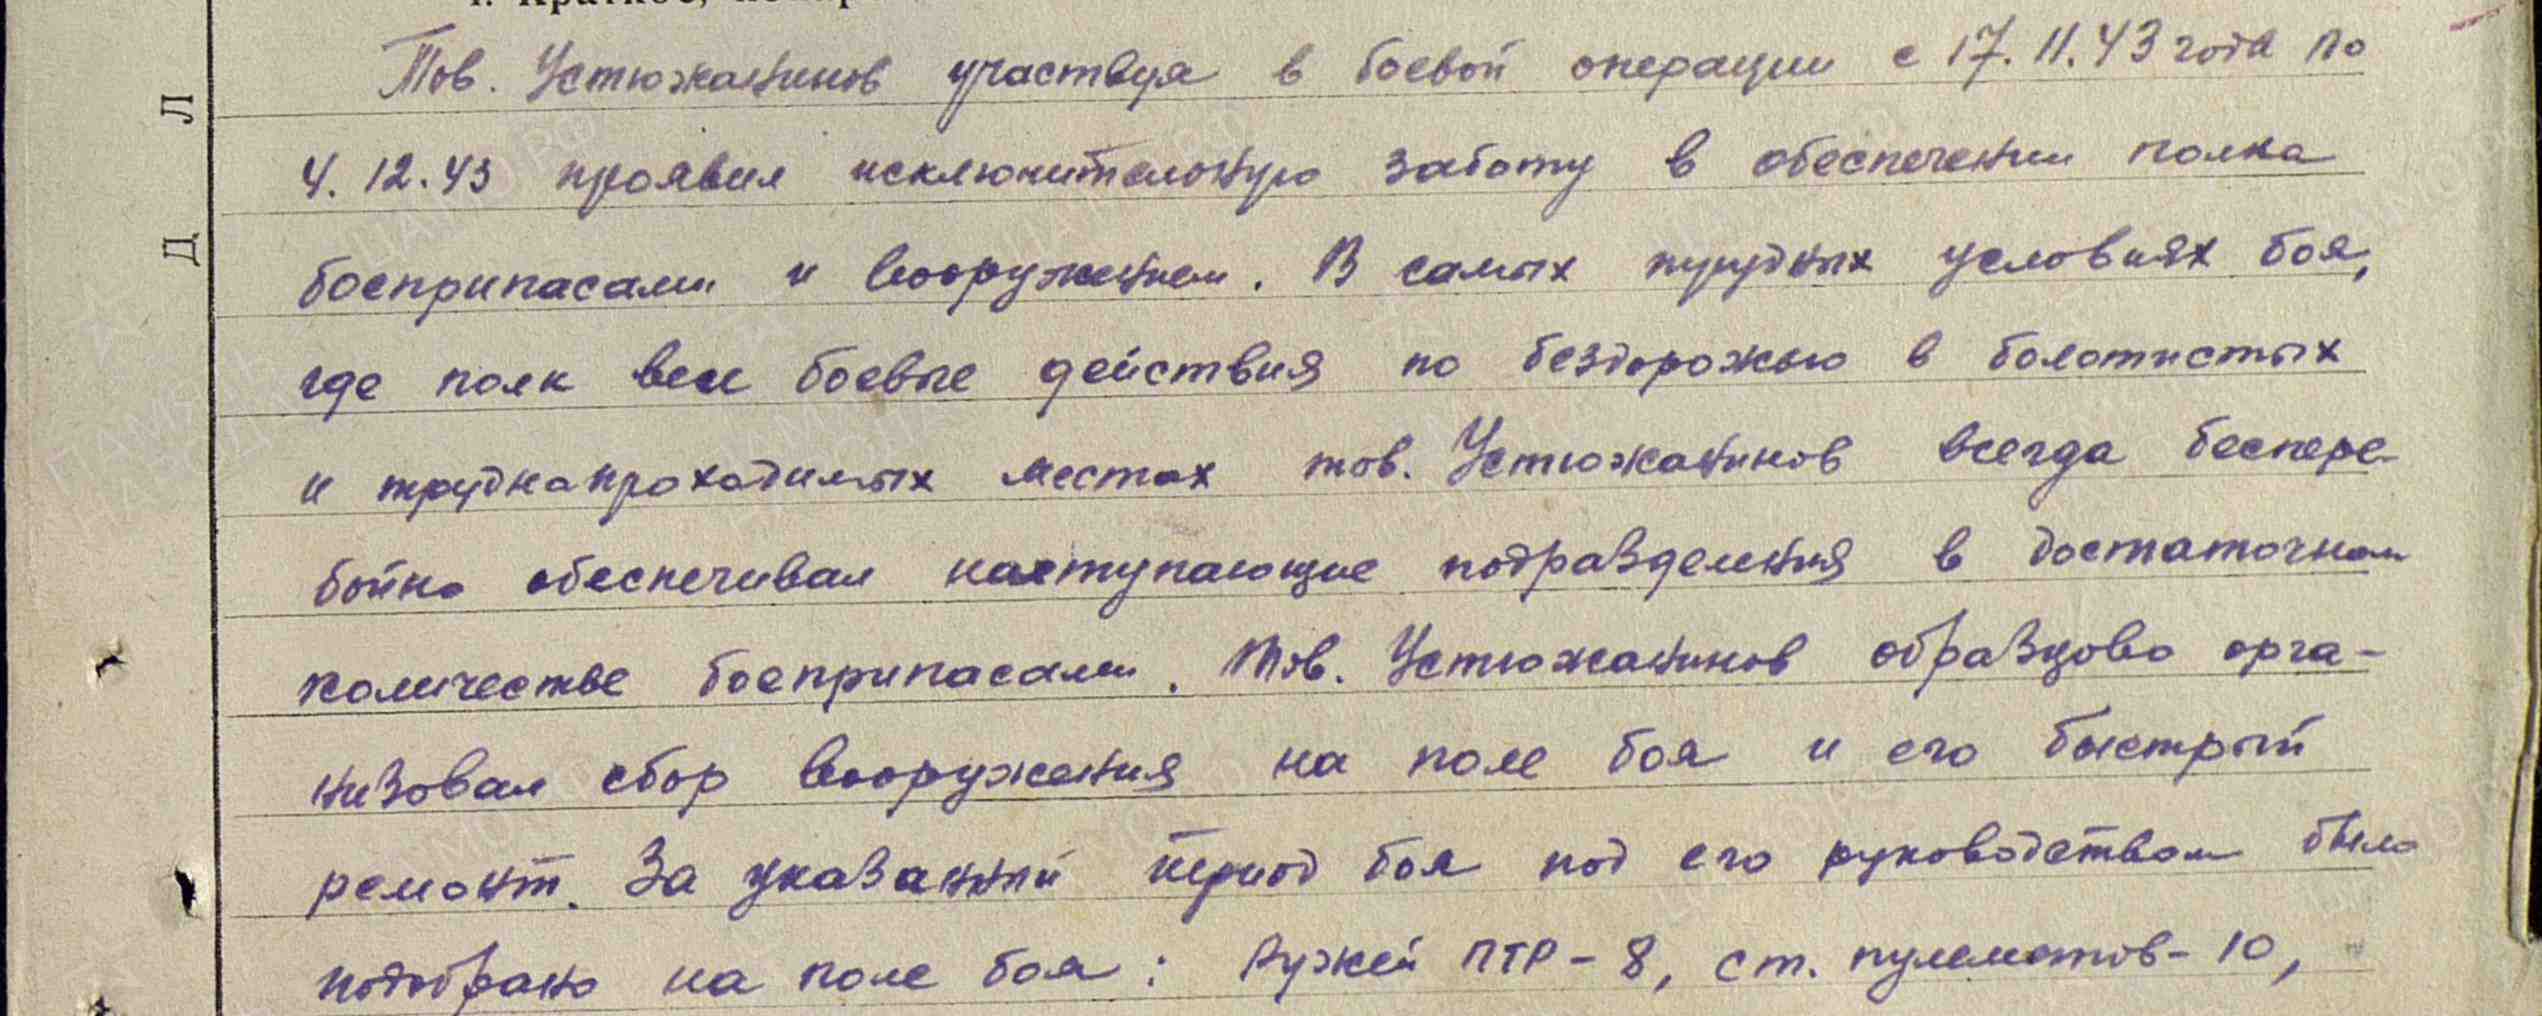 Тов. Устюжанинов участвуя в боевой операции с 17.11.43 года по
4.12.43 проявил исключительную заботу в обеспечении полка
боеприпасами и вооружением. В самых трудных условиях боя,
где полк вел боевые действия по бездорожью в болотистых
и труднапроходимых местах тов. Устюжанинов всегда беспере-
бойно обеспечивал наступающие подразделения в достаточном
количестве боеприпасами. Тов. Устюжанинов образцово орга-
низовал сбор вооружения на поле боя и его быстрый
ремонт. За указанный период боя под его руководством было
подобрано на поле боя: Ружей ПТР-8, ст. пулеметов-10,
Л
Д